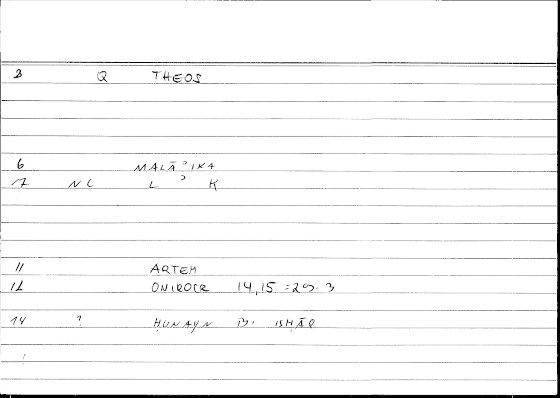 3 Q THEOS
6 MALĀʾIKA
7 NC L ʾ K
11 ARTEM
12 ONIROCR 14,15 = 29.3
14 ? ḤUNAYN B. ISḤĀQ